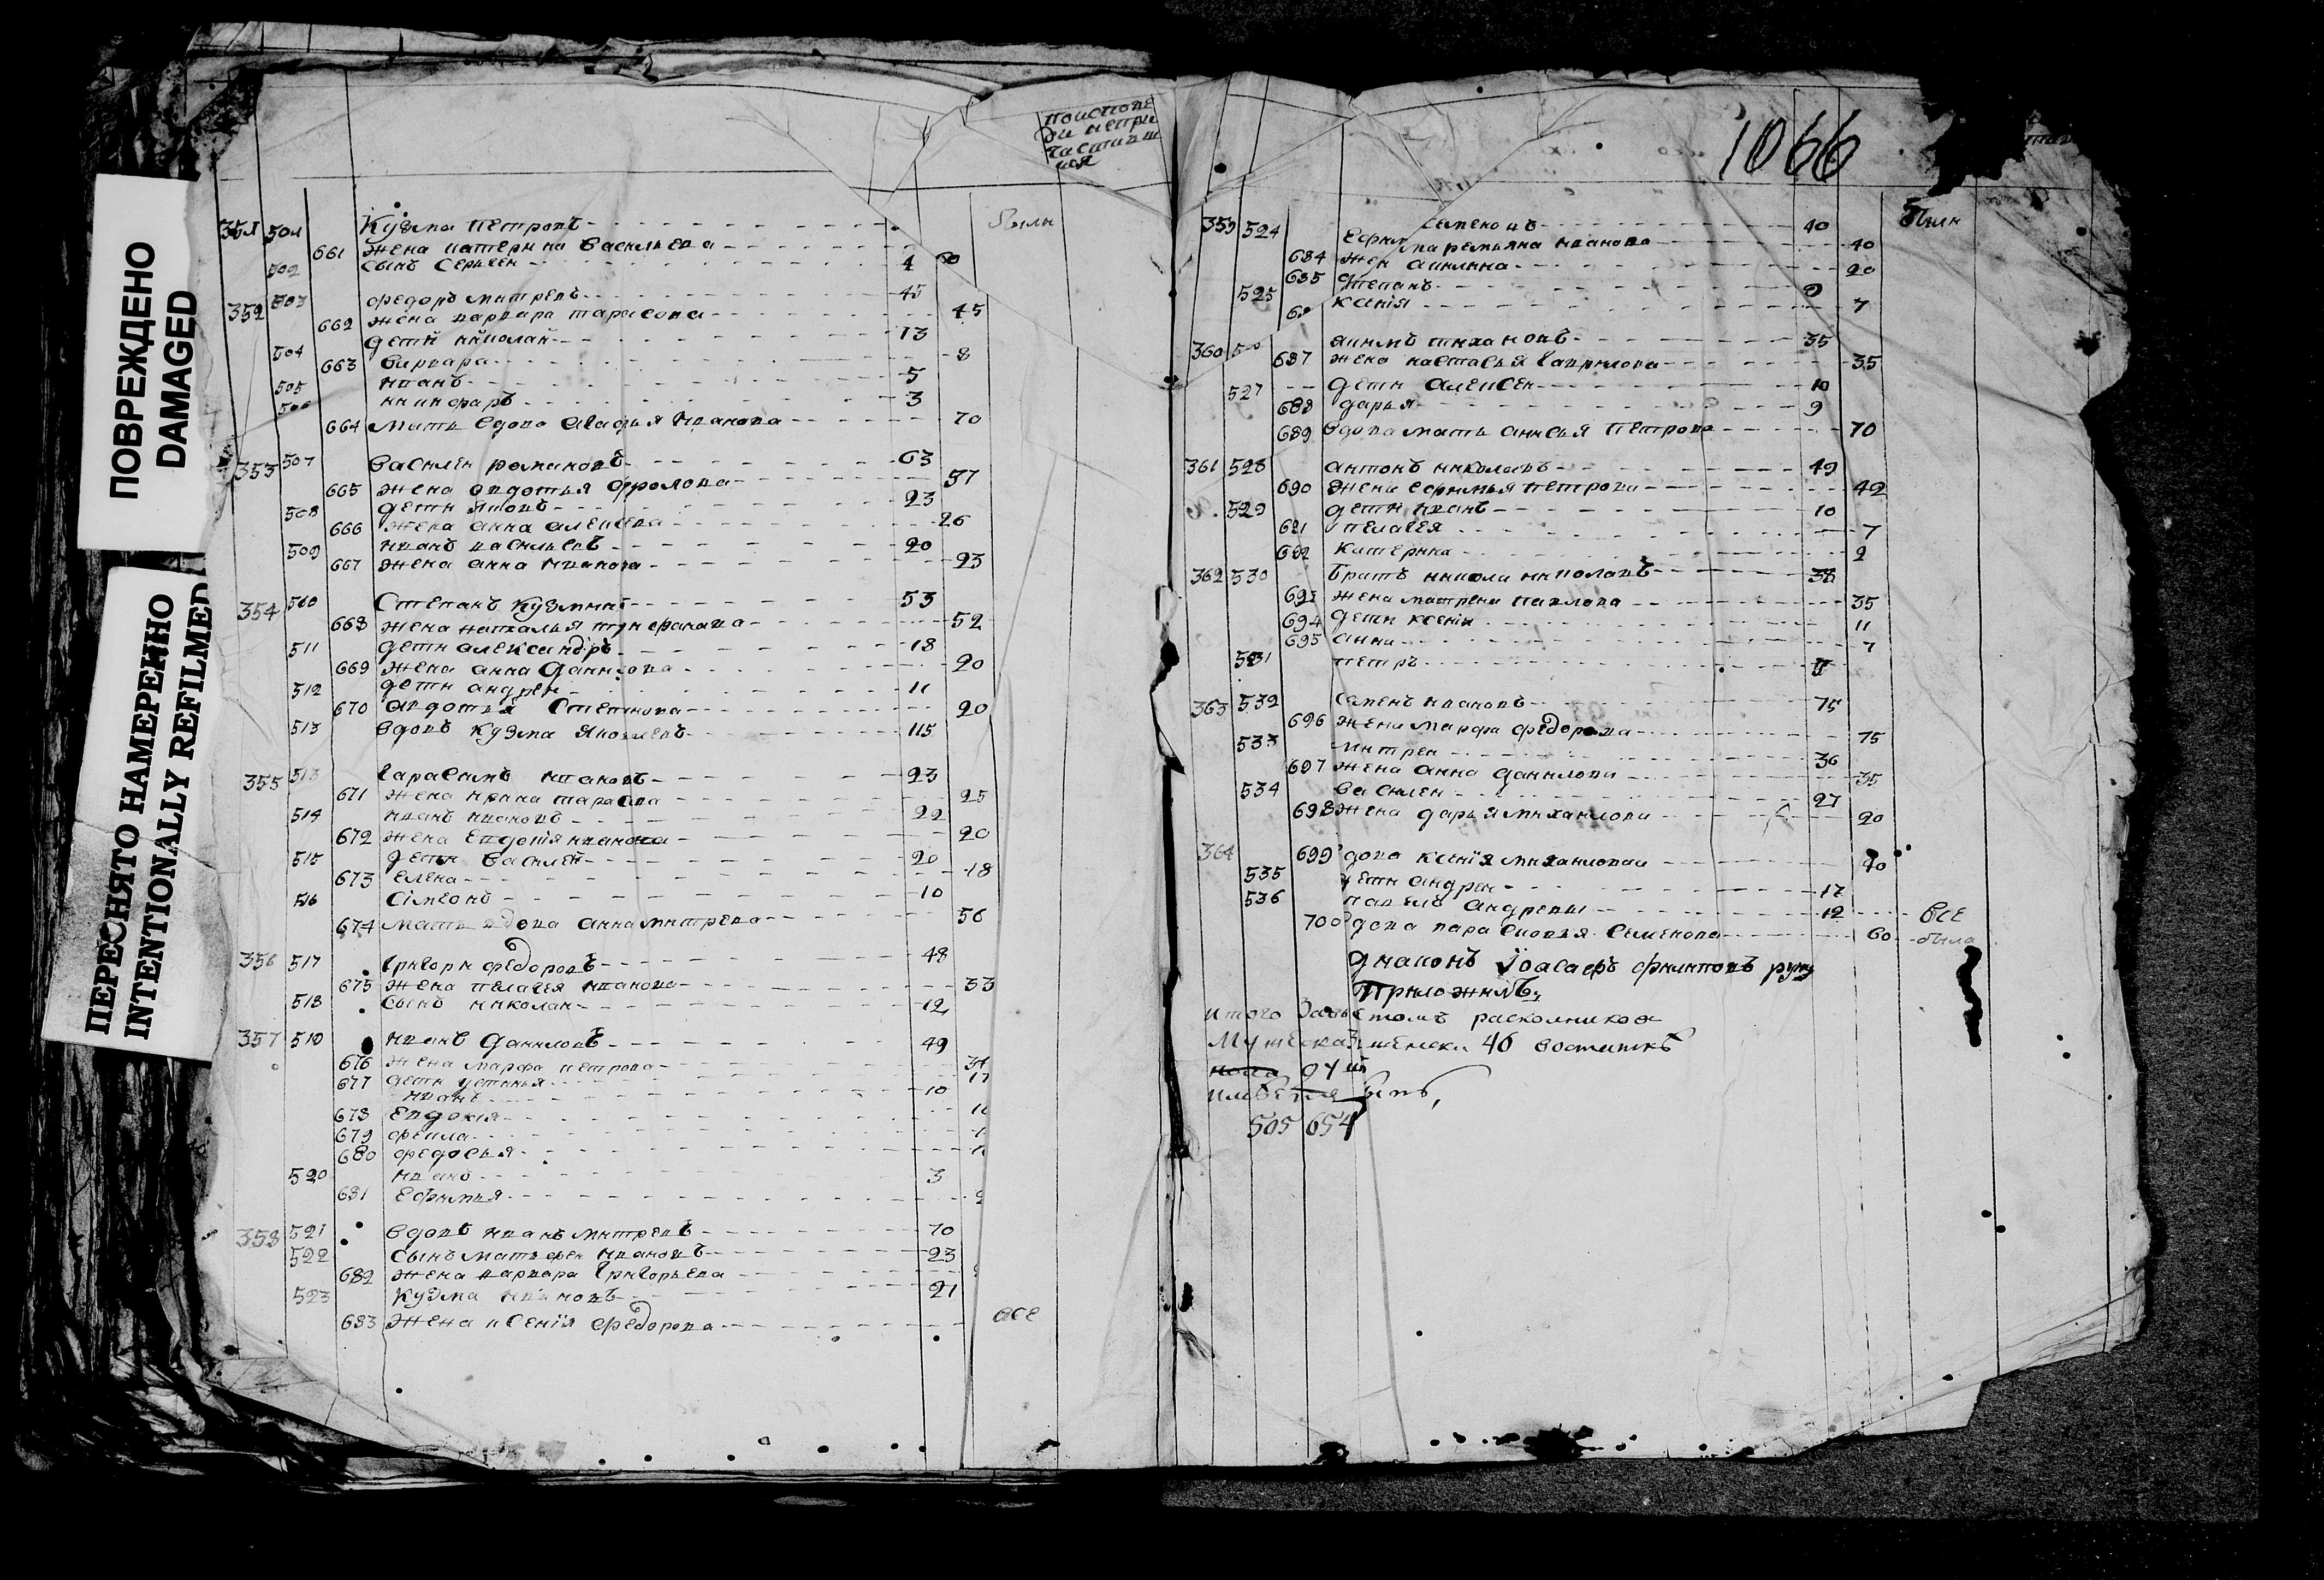 ПОВРЕЖДЕНО
DAMAGED
ПЕРЕСНЯТО НАМЕРЕННО
INTENTIONALLY REFILMED
351 501 Кузма Петровъ
661 жена катерина Васильева
502 сынъ Сергеи 4
352 503 федоръ митревъ 45
662 жена варвара тарасова 45
504 дети николаи 13
663 варвара 8
505 иванъ 5
506 никифоръ 3
664 мать вдова агафья Иванова 70
353 507 василеи романовъ 63
665 жена овдотья фролова 57
508 дети яковъ 23
666 жена анна алексева 26
509 иванъ васильевъ 20
667 жена анна иванова 23
354 510 Степанъ Кузминъ 53
668 жена наталья 52
511 дети александръ 18
669 жена анна данилова 20
512 дети андреи 11
670 авдотья Степанова 20
513 вдовъ кузма яковлевъ 115
355 513 гарасимъ ивановъ 23
671 жена ирина тарасова 25
514 иванъ ивановъ 22
672 жена Евдокія иванова 20
515 дети василеи 20
673 елена 18
516 Сімеонъ 10
674 мать вдова анна митрева 56
356 517 григори федоровъ 48
675 жена пелагея иванова 33
518 сынъ николаи 12
357 519 иванъ даниловъ 49
676 жена марфа петрова
677 дети устинья
иванъ 10
678 Евдокия
679 фекла
680 федосья
520 иванъ 3
681 ефимья
358 521 вдовъ иванъ митревъ 70
522 сынъ матвеи ивановъ 23
682 жена варвара григорьева
523 кузма ивановъ 21
683 жена ксенія федорова
все
были
поиспове
ди непри
частивш
ися
1066
359 524 семеновъ 40 были
684 маремьяна иванова 40
685 акилина 20
525 степанъ
ксенія 7
360 якимъ тихановъ 35
687 жена настасья гаврилова 35
527 дети алексеи 10
688 дарья 9
689 вдова мать анисья петрова 70
361 528 антонъ николаевъ 49
690 жена ефимья петрова 42
529 дети иванъ 10
691 пелагея 7
692 катерина 2
362 530 братъ никола николаевъ
693 жена матрена павлова 35
694 дети ксенія 11
695 анна 7
531 петръ
363 532 семенъ ивановъ 75
696 жена марфа федорова 75
533 митреи 36
697 жена анна данилова 35
534 василеи 27
698 жена дарья михаилова 20
364 699 вдова ксенія михаилова 40
535 дети андреи 17
536 павелъ андреевъ 12 все
700 вдова парасковья Семенова 60 была
диаконъ іоасафъ филиповъ руку
Приложилъ
итого раскольников
Мужеска женска 46
505 654